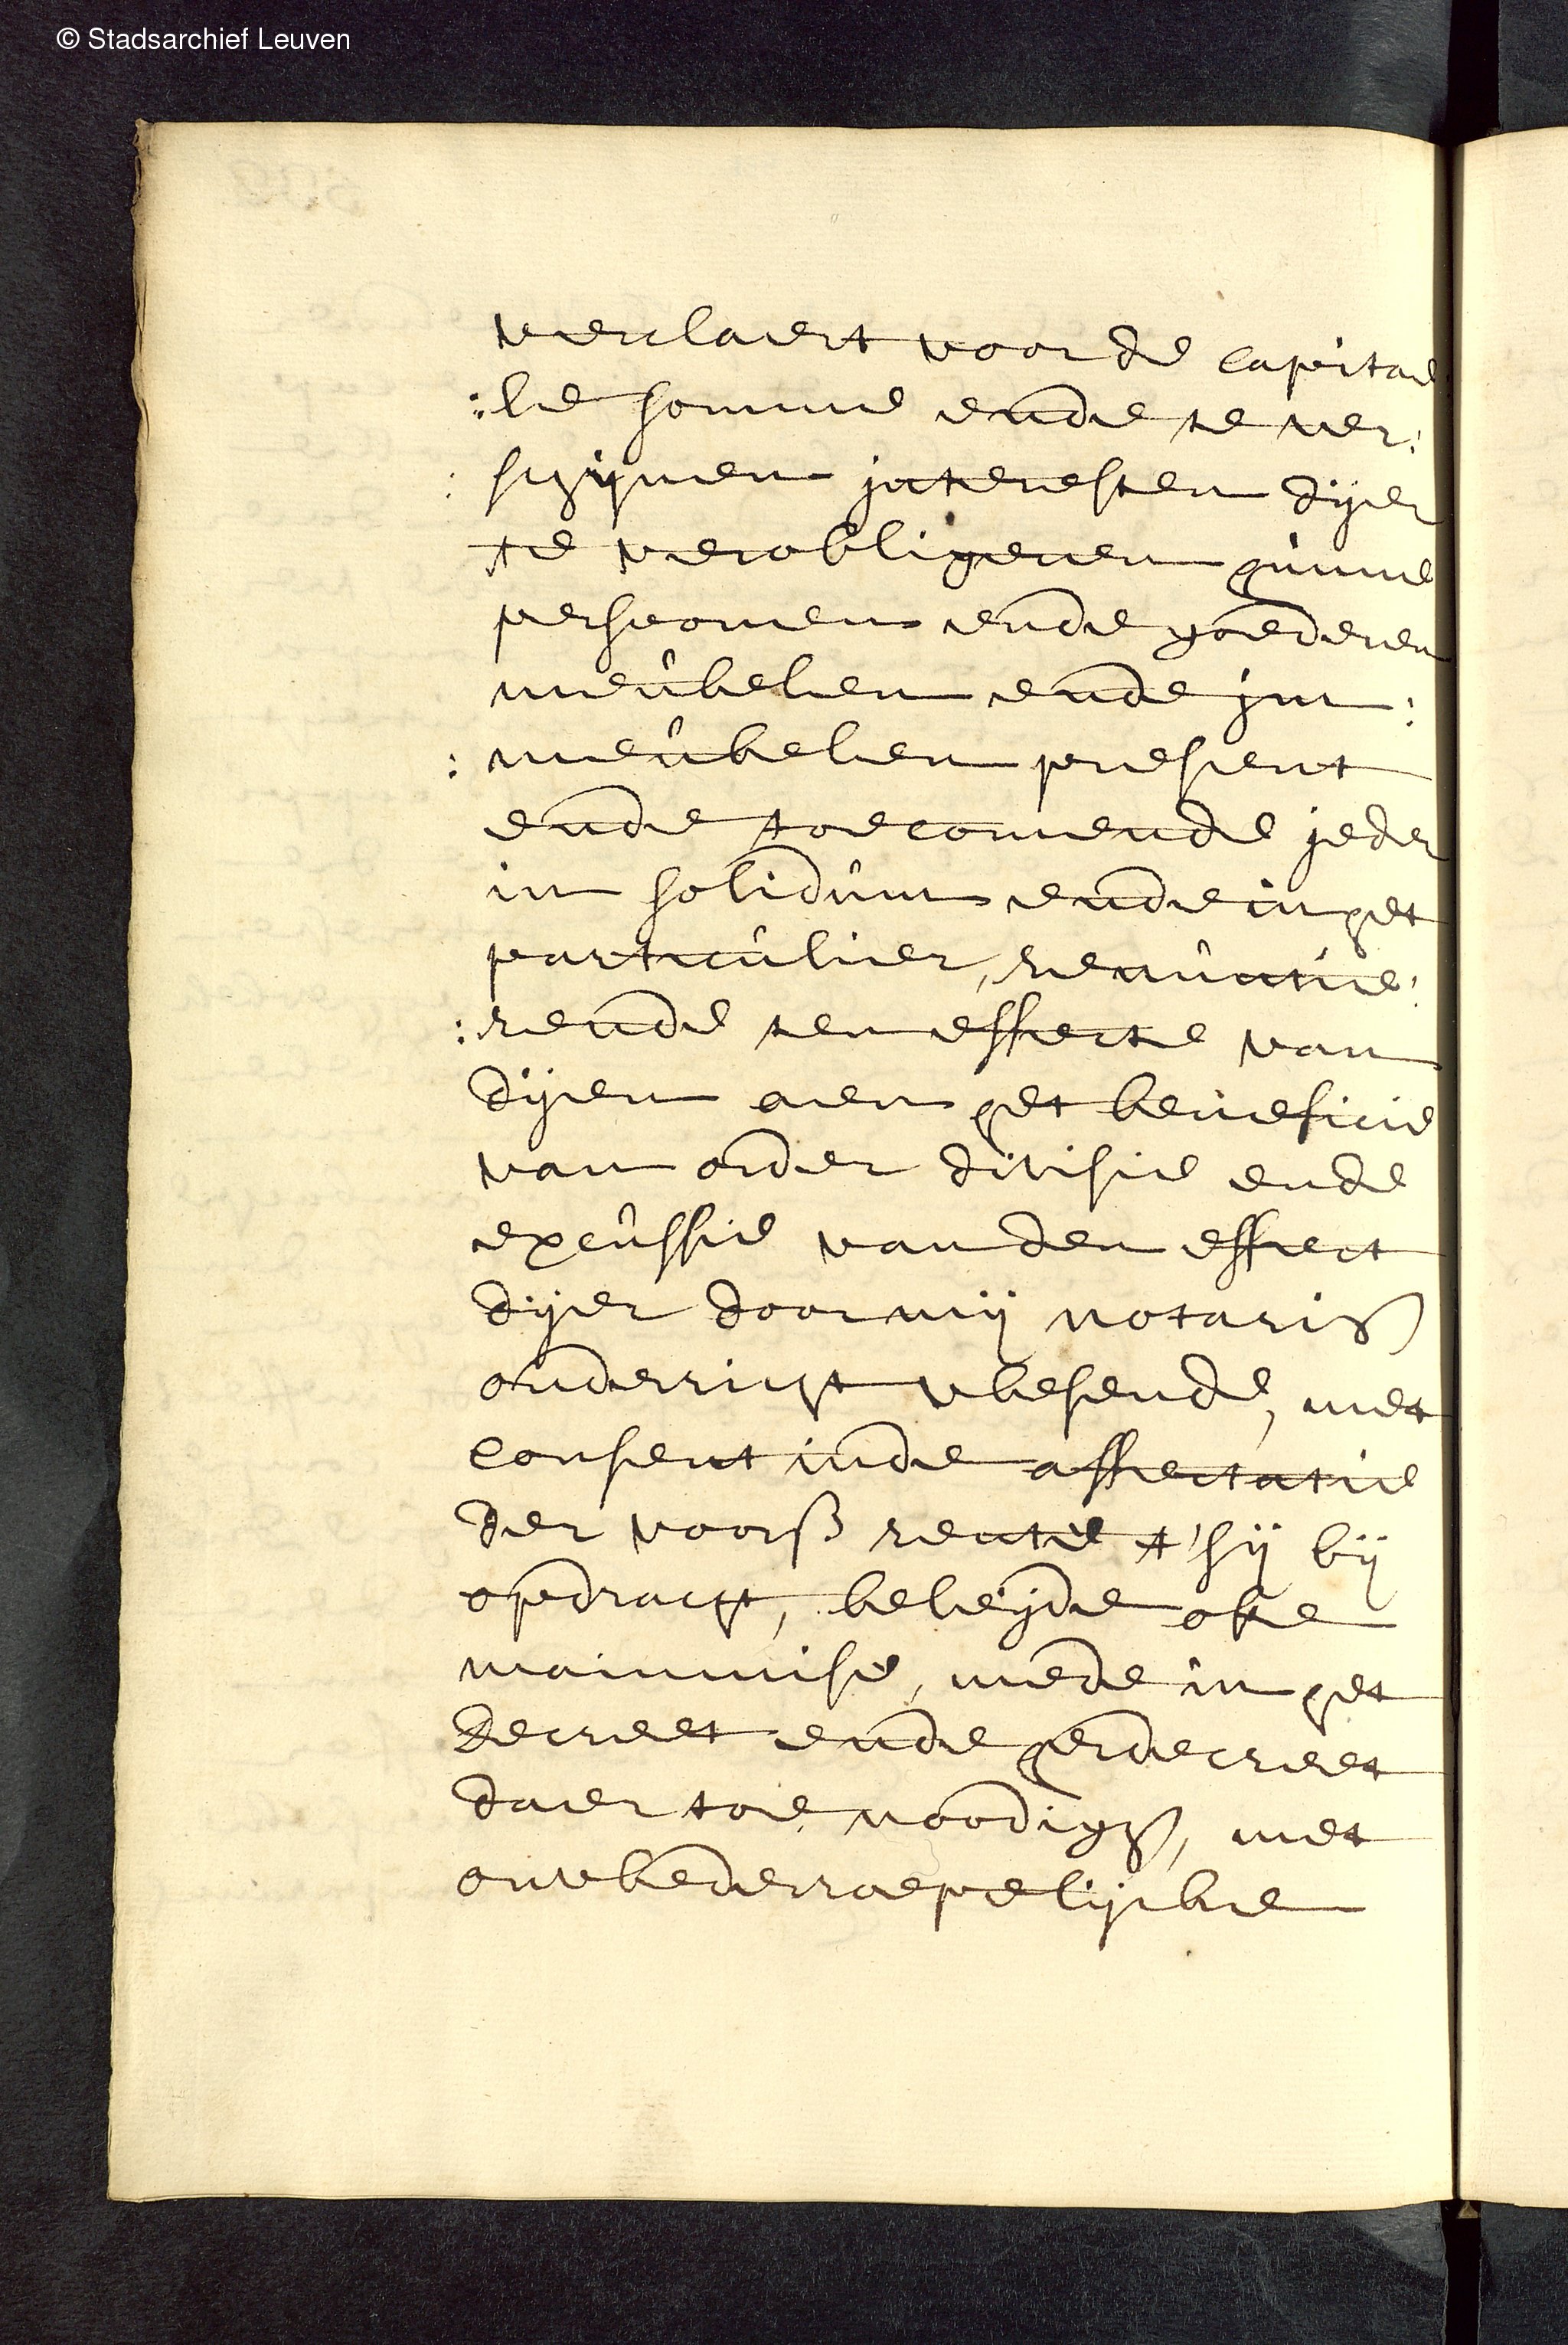 © Stadsarchief Leuven
verclaert voor de capitae
:le somme ende te ver:
: schijnen interesten dijer
te verobligeren hunne
persoonen ende goederen
meûbelen ende im:
: meûbelen present
ende toecomende jeder
in solidûm ende in het
particûlier, renûntie:
: rende ten effecte van
dijen aen het beneficie
van order divisie ende
excûssie van den effect
dijer door mij notariß
onderricht wesende, met
consent inde affectatie
der voorß rente t'sij bij
opdracht, beleijde ofte
mainmise, mede in het
decreet ende herdecreet
daer toe noodigh, met
onwederroepelijcke